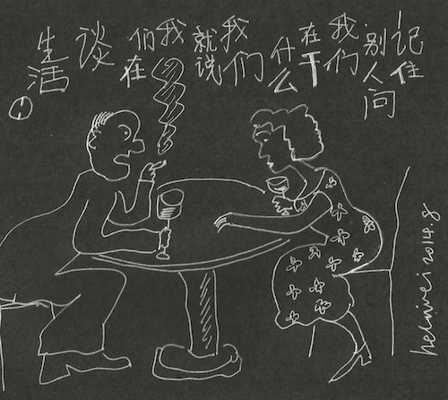 记住
别人问
我们
在干
什么
我们
就说
我
们在
谈
生活。
heliwei 2014.8